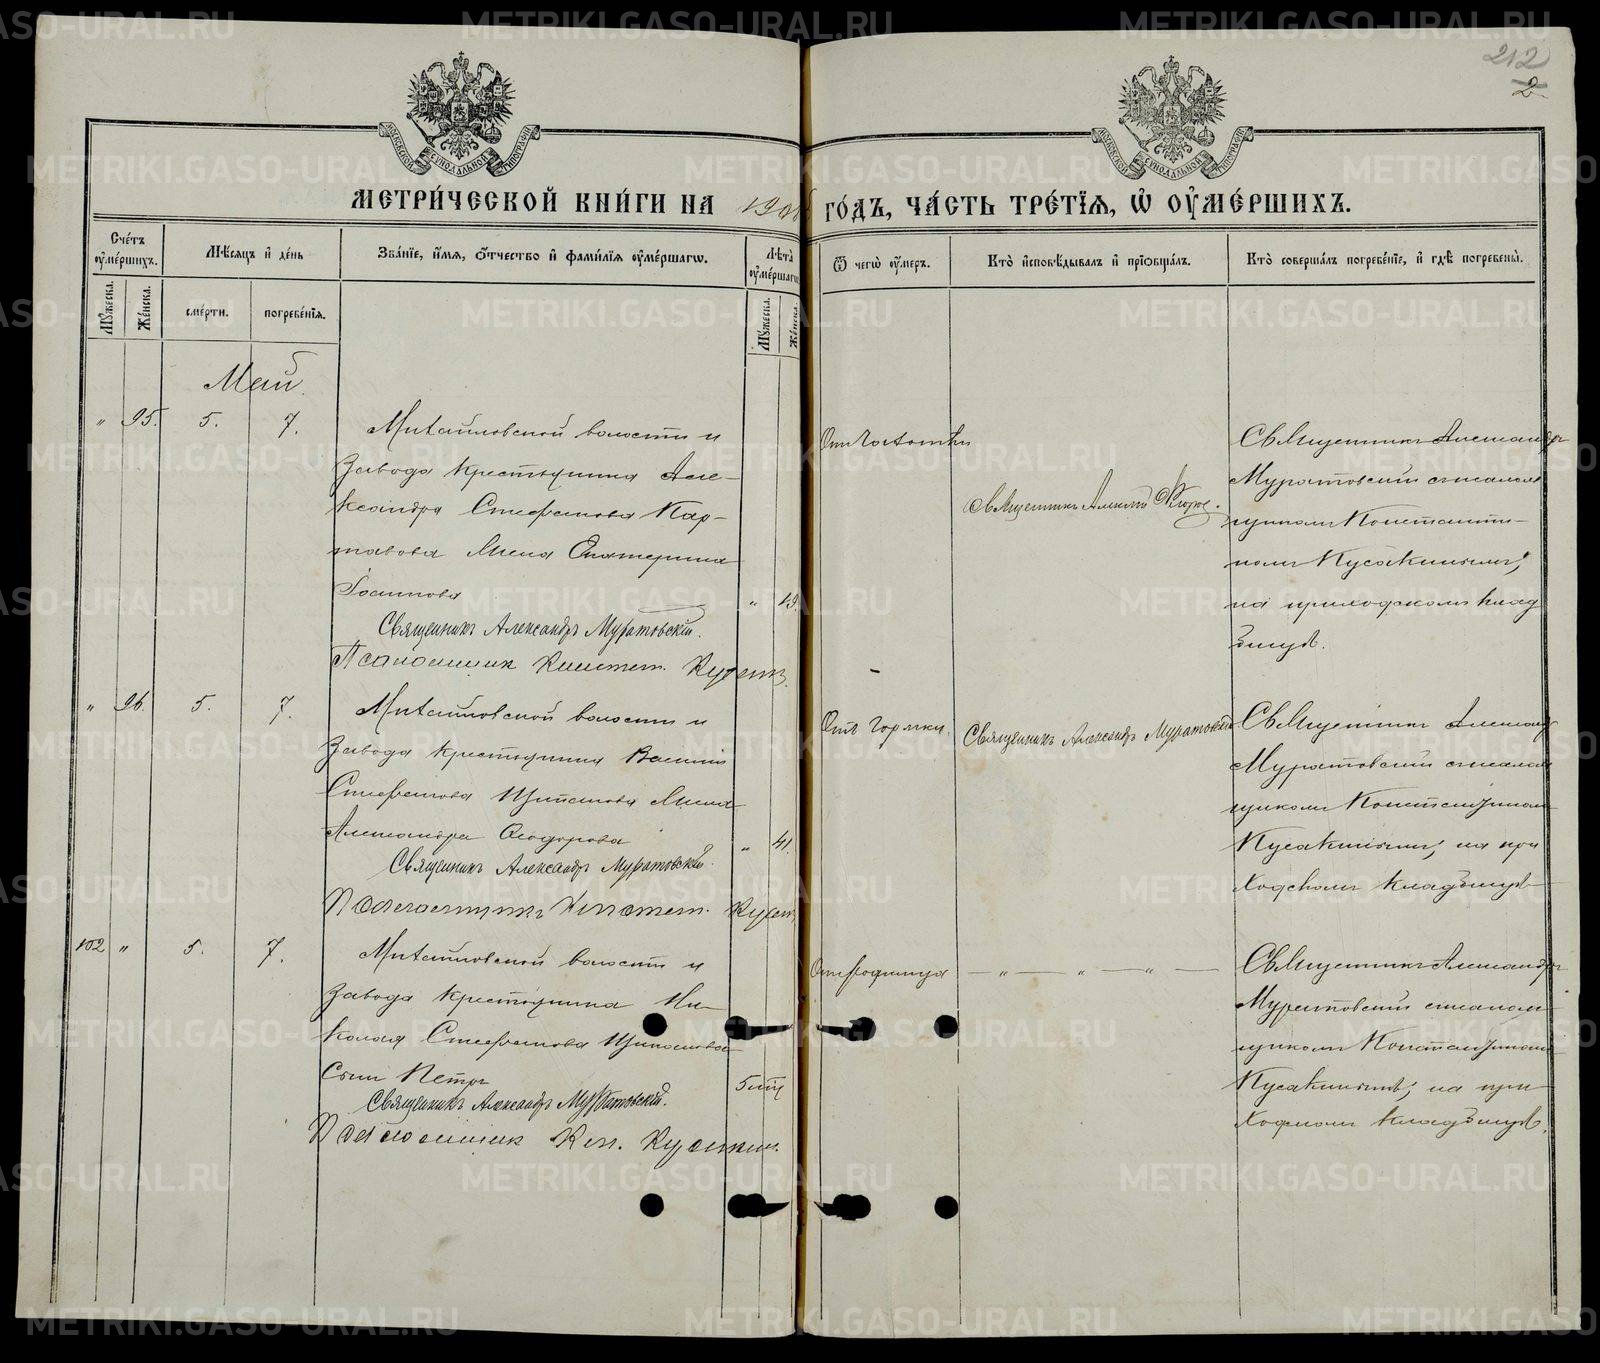 212
2
МОСКОВСКОЙ СѴНОДАЛЬНОЙ ТИПОГРАФІИ
МОСКОВСКОЙ СѴНОДАЛЬНОЙ ТИПОГРАФІИ
МЕТРИ́ЧЕСКОЙ КНИ́ГИ НА 190 ГО́ДЪ, ЧА́СТЬ ТРЕ́ТЇѦ, Ѡ ОУ҆МЕ́РШИХЪ.
Сче́тъ оу҆ме́ршихъ.
Мꙋ́жеска.
Же́нска.
Мѣ́сяцъ и҆ де́нь
сме́рти.
погребе́нїѧ.
Зва́нїе, и҆́мѧ, ѻ҆́тчество и҆ фами́лїѧ оу҆ме́ршагѡ.
Лѣ́та оу҆ме́ршагѡ
Мꙋ́жеска.
Же́нска.
Ѿ чегѡ̀ оу҆́меръ.
Кто̀ и҆сповѣ́дывалъ и҆ прїѡбща́лъ.
Кто̀ соверша́лъ погребе́нїе, и҆ гдѣ̀ погребены̀.
Май.
" 95. 5. 7.
Михайловской волости и
завода крестьянина Але-
ксандра Стефанова Кар-
тавова жена Екатерина
Іоаннова
" 49.
Священникъ Александръ Муратовскій.
Псаломщик Констант. Кусакин.
От чахотки
Священникъ Алексій
Священникъ Александръ
Муратовскій съ псалом
щикомъ Константи-
номъ Кусакинымъ,
на приходскомъ клад
бищѣ.
" 96. 5. 7.
Михайловской волости и
завода крестьянина Василія
Стефанова Щипанова жена
Александра Ѳеодорова
" 41.
Священникъ Александръ Муратовскій.
Псаломщикъ Констант. Кусакин
Отъ горячки.
Священникъ Александръ Муратовскій
Священникъ Александръ
Муратовскій съ псалом
щикомъ Константиномъ
Кусакинымъ, на при
ходскомъ кладбищѣ
102 " 5. 7.
Михайловской волости и
завода крестьянина Ни-
колая Стефанова Щипанова
сынъ Петръ
Священникъ Александръ Муратовскій.
Псаломщик Кон. Кусакин.
От родимца
— " — " — " —
Священникъ Александръ
Муратовскій съ псалом-
щикомъ Константиномъ
Кусакинымъ, на при-
ходскомъ кладбищѣ.
METRIKI.GASO-URAL.RU